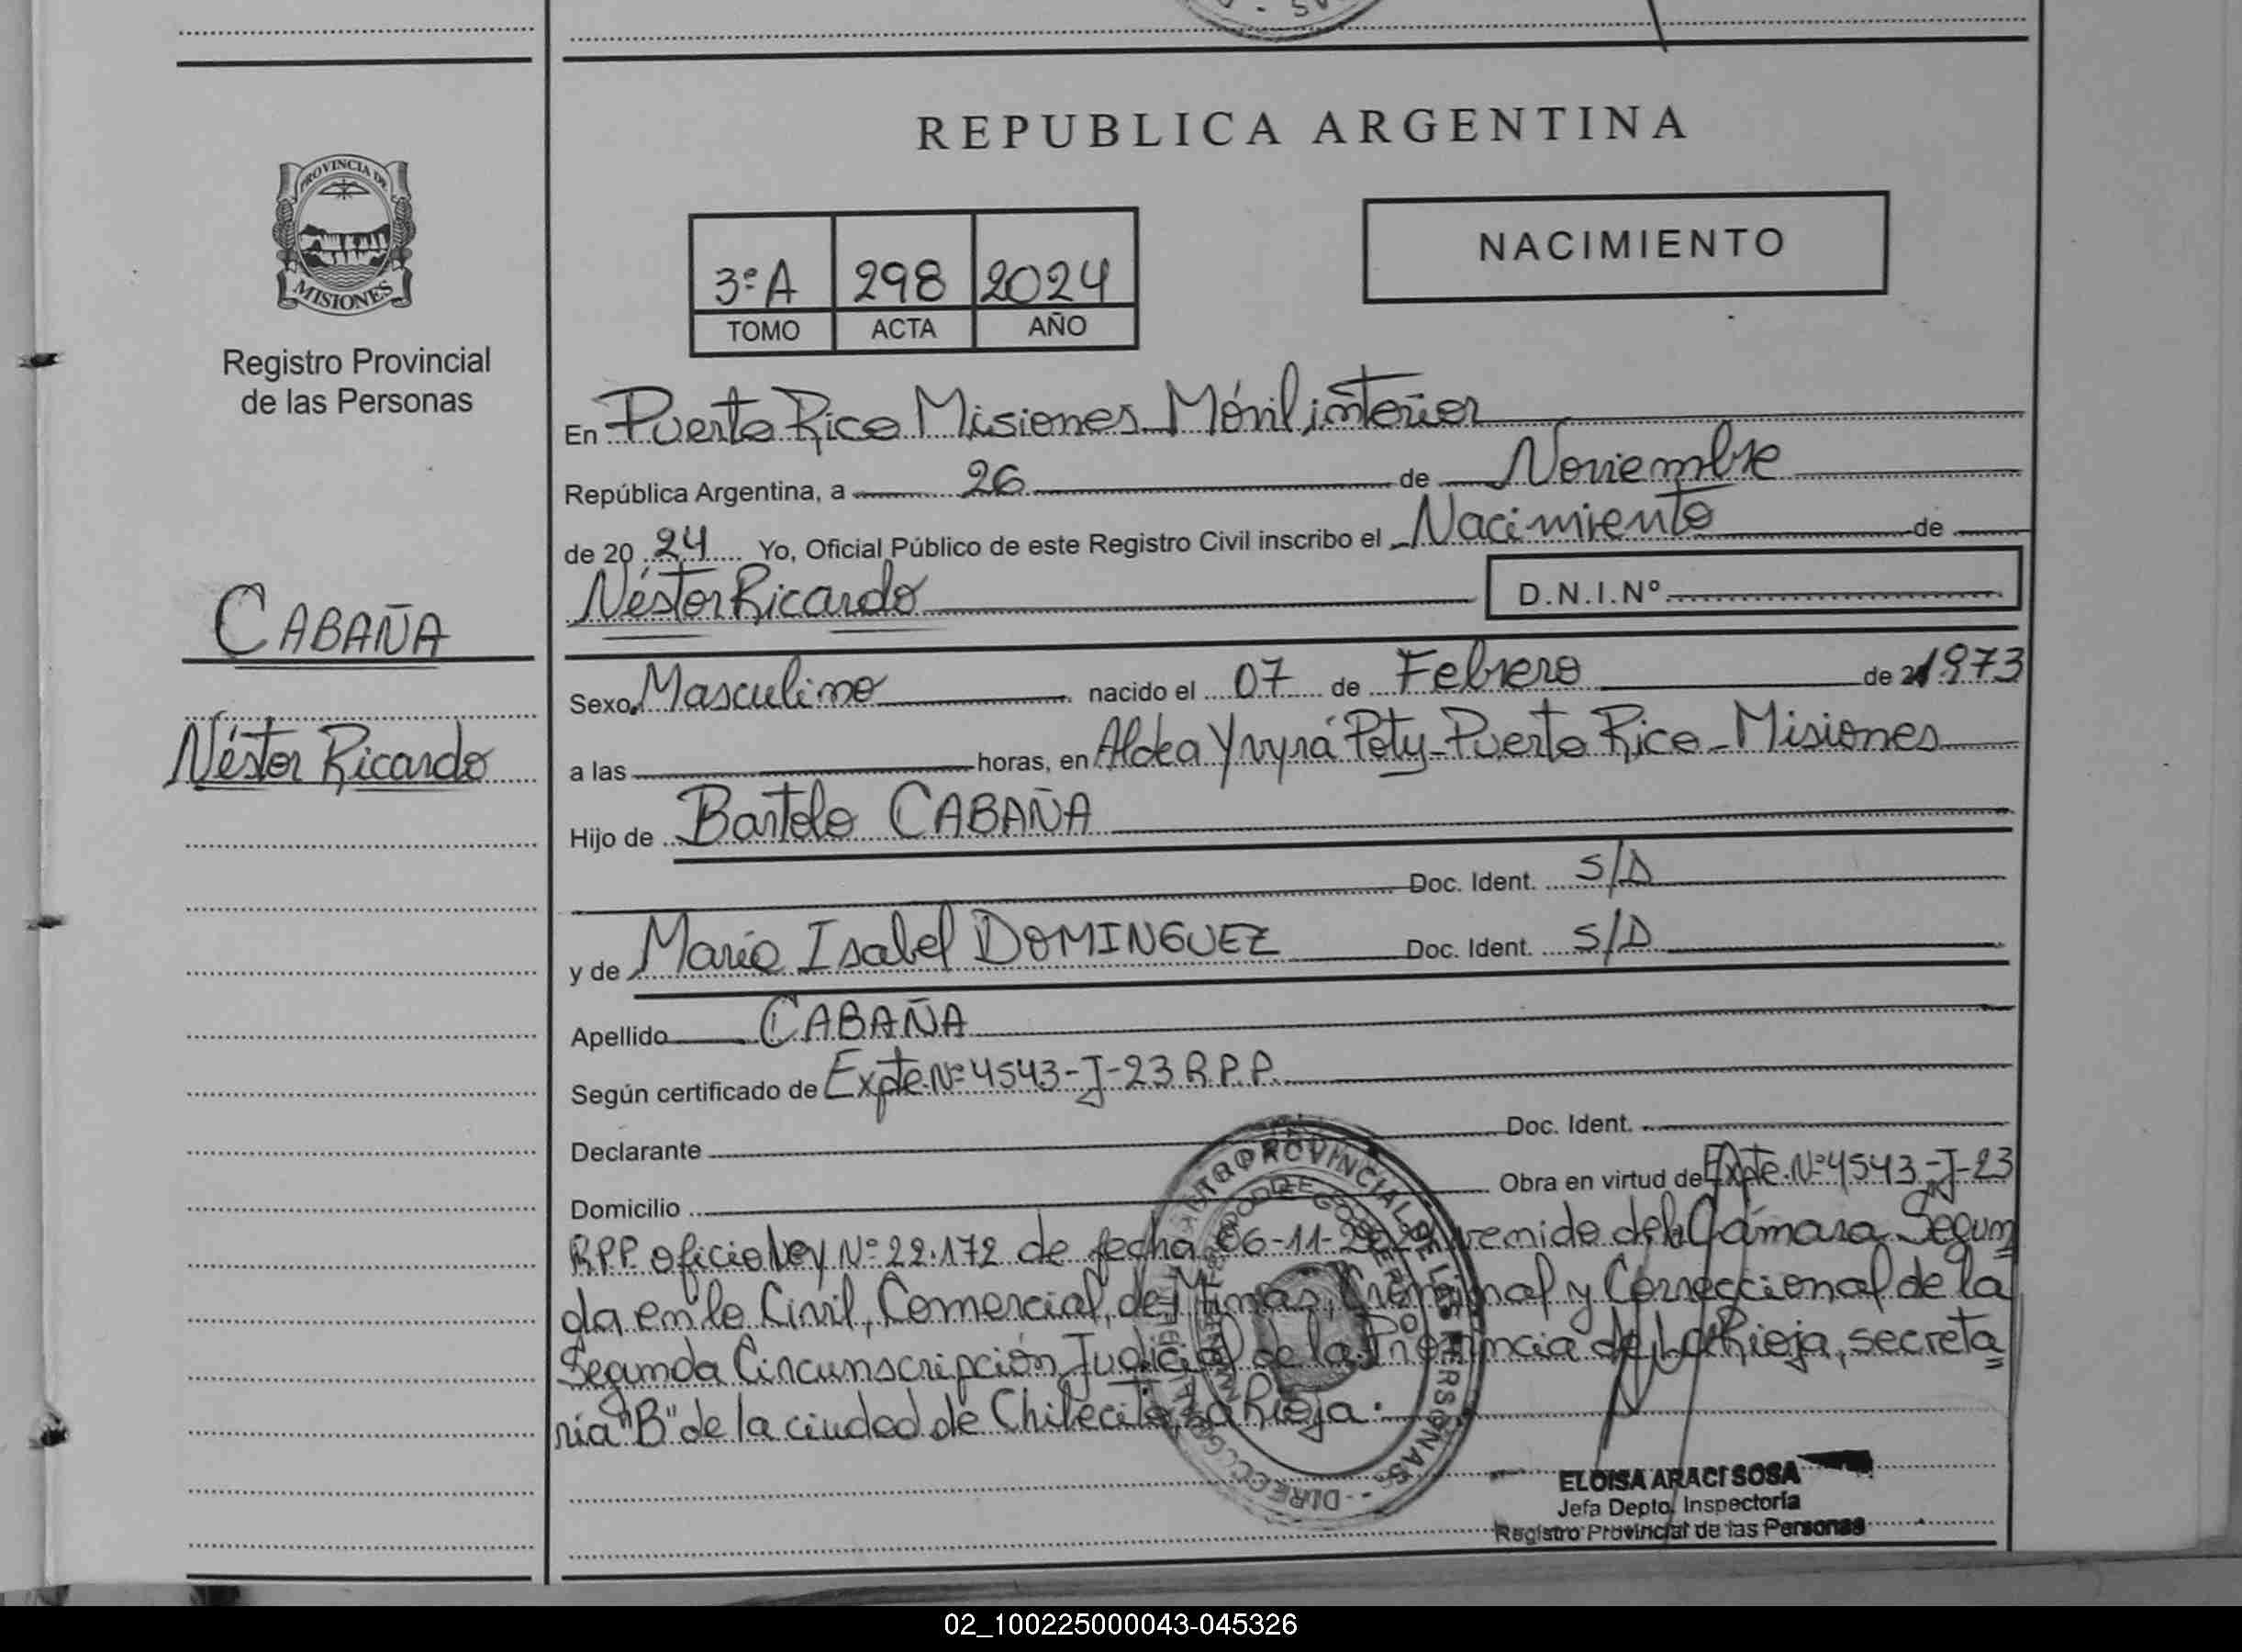 REPUBLICA ARGENTINA
PROVINCIA DE
MISIONES
Registro Provincial
de las Personas
NACIMIENTO
3ºA 298 2024
TOMO ACTA AÑO
En Puerto Rico Misiones Móvil interior
República Argentina, a 26 de Noviembre
de 20 24 Yo, Oficial Público de este Registro Civil inscribo el Nacimiento de
Néstor Ricardo D.N.I.Nº
CABAÑA
Néstor Ricardo
Sexo Masculino nacido el 07 de Febrero de 1973
a las horas, en Aldea Yvyrá Poty-Puerto Rico-Misiones
Hijo de Bartolo CABAÑA
Doc. Ident. S/D
y de María Isabel DOMINGUEZ Doc. Ident. S/D
Apellido CABAÑA
Según certificado de Expte.Nº4543-J-23 R.P.P.
Declarante Doc. Ident.
Domicilio Obra en virtud de Expte.Nº4543-J-23
RPP. oficio Ley Nº22.172 de fecha 06-11- de la Cámara Segun
da en lo Civil, Comercial, de Minas, Criminal y Correccional de la
Segunda Circunscripción Judicial de la Provincia de La Rioja, secreta
ría "B" de la ciudad de Chilecito, La Rioja.
ELOISA ARACI SOSA
Jefa Depto. Inspectoría
Registro Provincial de las Personas
02_100225000043-045326